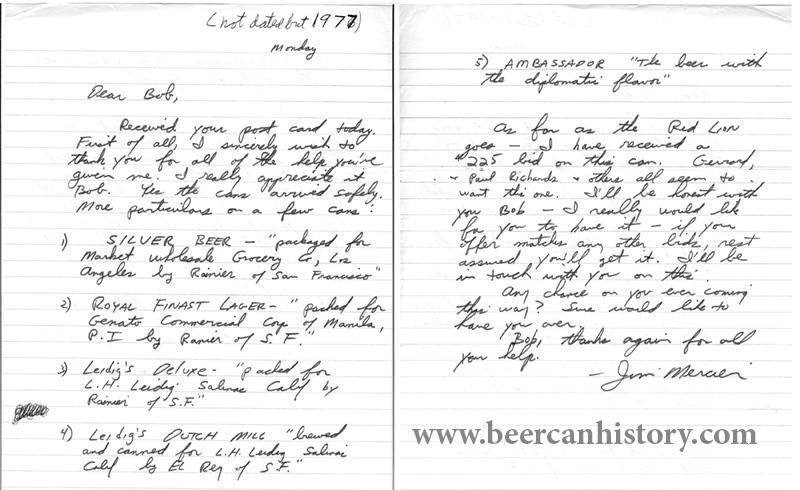 (not dated but 1977)
Monday
Dear Bob,
Received your post card today.
First of all, I sincerely wish to
thank you for all of the help you've
given me. I really appreciate it
Bob. Yes the cans arrived safely.
More particulars on a few cans:
1) SILVER BEER - "packaged for
Market Wholesale Grocery Co, Los
Angeles by Rainier of San Francisco"
2) ROYAL FINAST LAGER - "packed for
Genato Commercial Corp of Manila,
P.I by Ranier of S.F."
3) Leidig's Deluxe - "packed for
L.H. Leidig Salinas Calif by
Rainier of S.F."
4) Leidig's DUTCH MILL "brewed
and canned for L.H. Leidig Salinas
Calif by El Rey of S.F."
5) AMBASSADOR "The beer with
the diplomatic flavor"
As far as the Red Lion
goes - I have received a
$225 bid on this can. Gerrard,
+ Paul Richards + others all seem to
want this one. I'll be honest with
you Bob - I really would like
for you to have it - if your
offer matches any other bids, rest
assured, you'll get it. I'll be
in touch with you on this.
Any chance on you ever coming
this way? Sure would like to
have you over.
Bob, thanks again for all
your help.
- Jim Mercier
www.beercanhistory.com